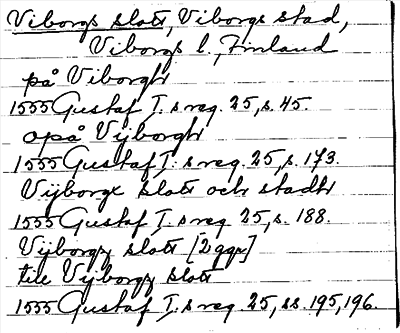 Viborgs slott, Viborgs stad,
Viborgs l., Finland
på Viborgh
1555 Gustaf I:s reg. 25, s. 45.
opå Vijborgh
1555 Gustaf I:s reg. 25, s. 173.
Vijborge slott och stadh
1555 Gustaf I:s reg 25, s. 188.
Vijborgz slott [2 ggr]
till Vijborgz slott
1555 Gustaf I:s reg. 25, ss. 195, 196.